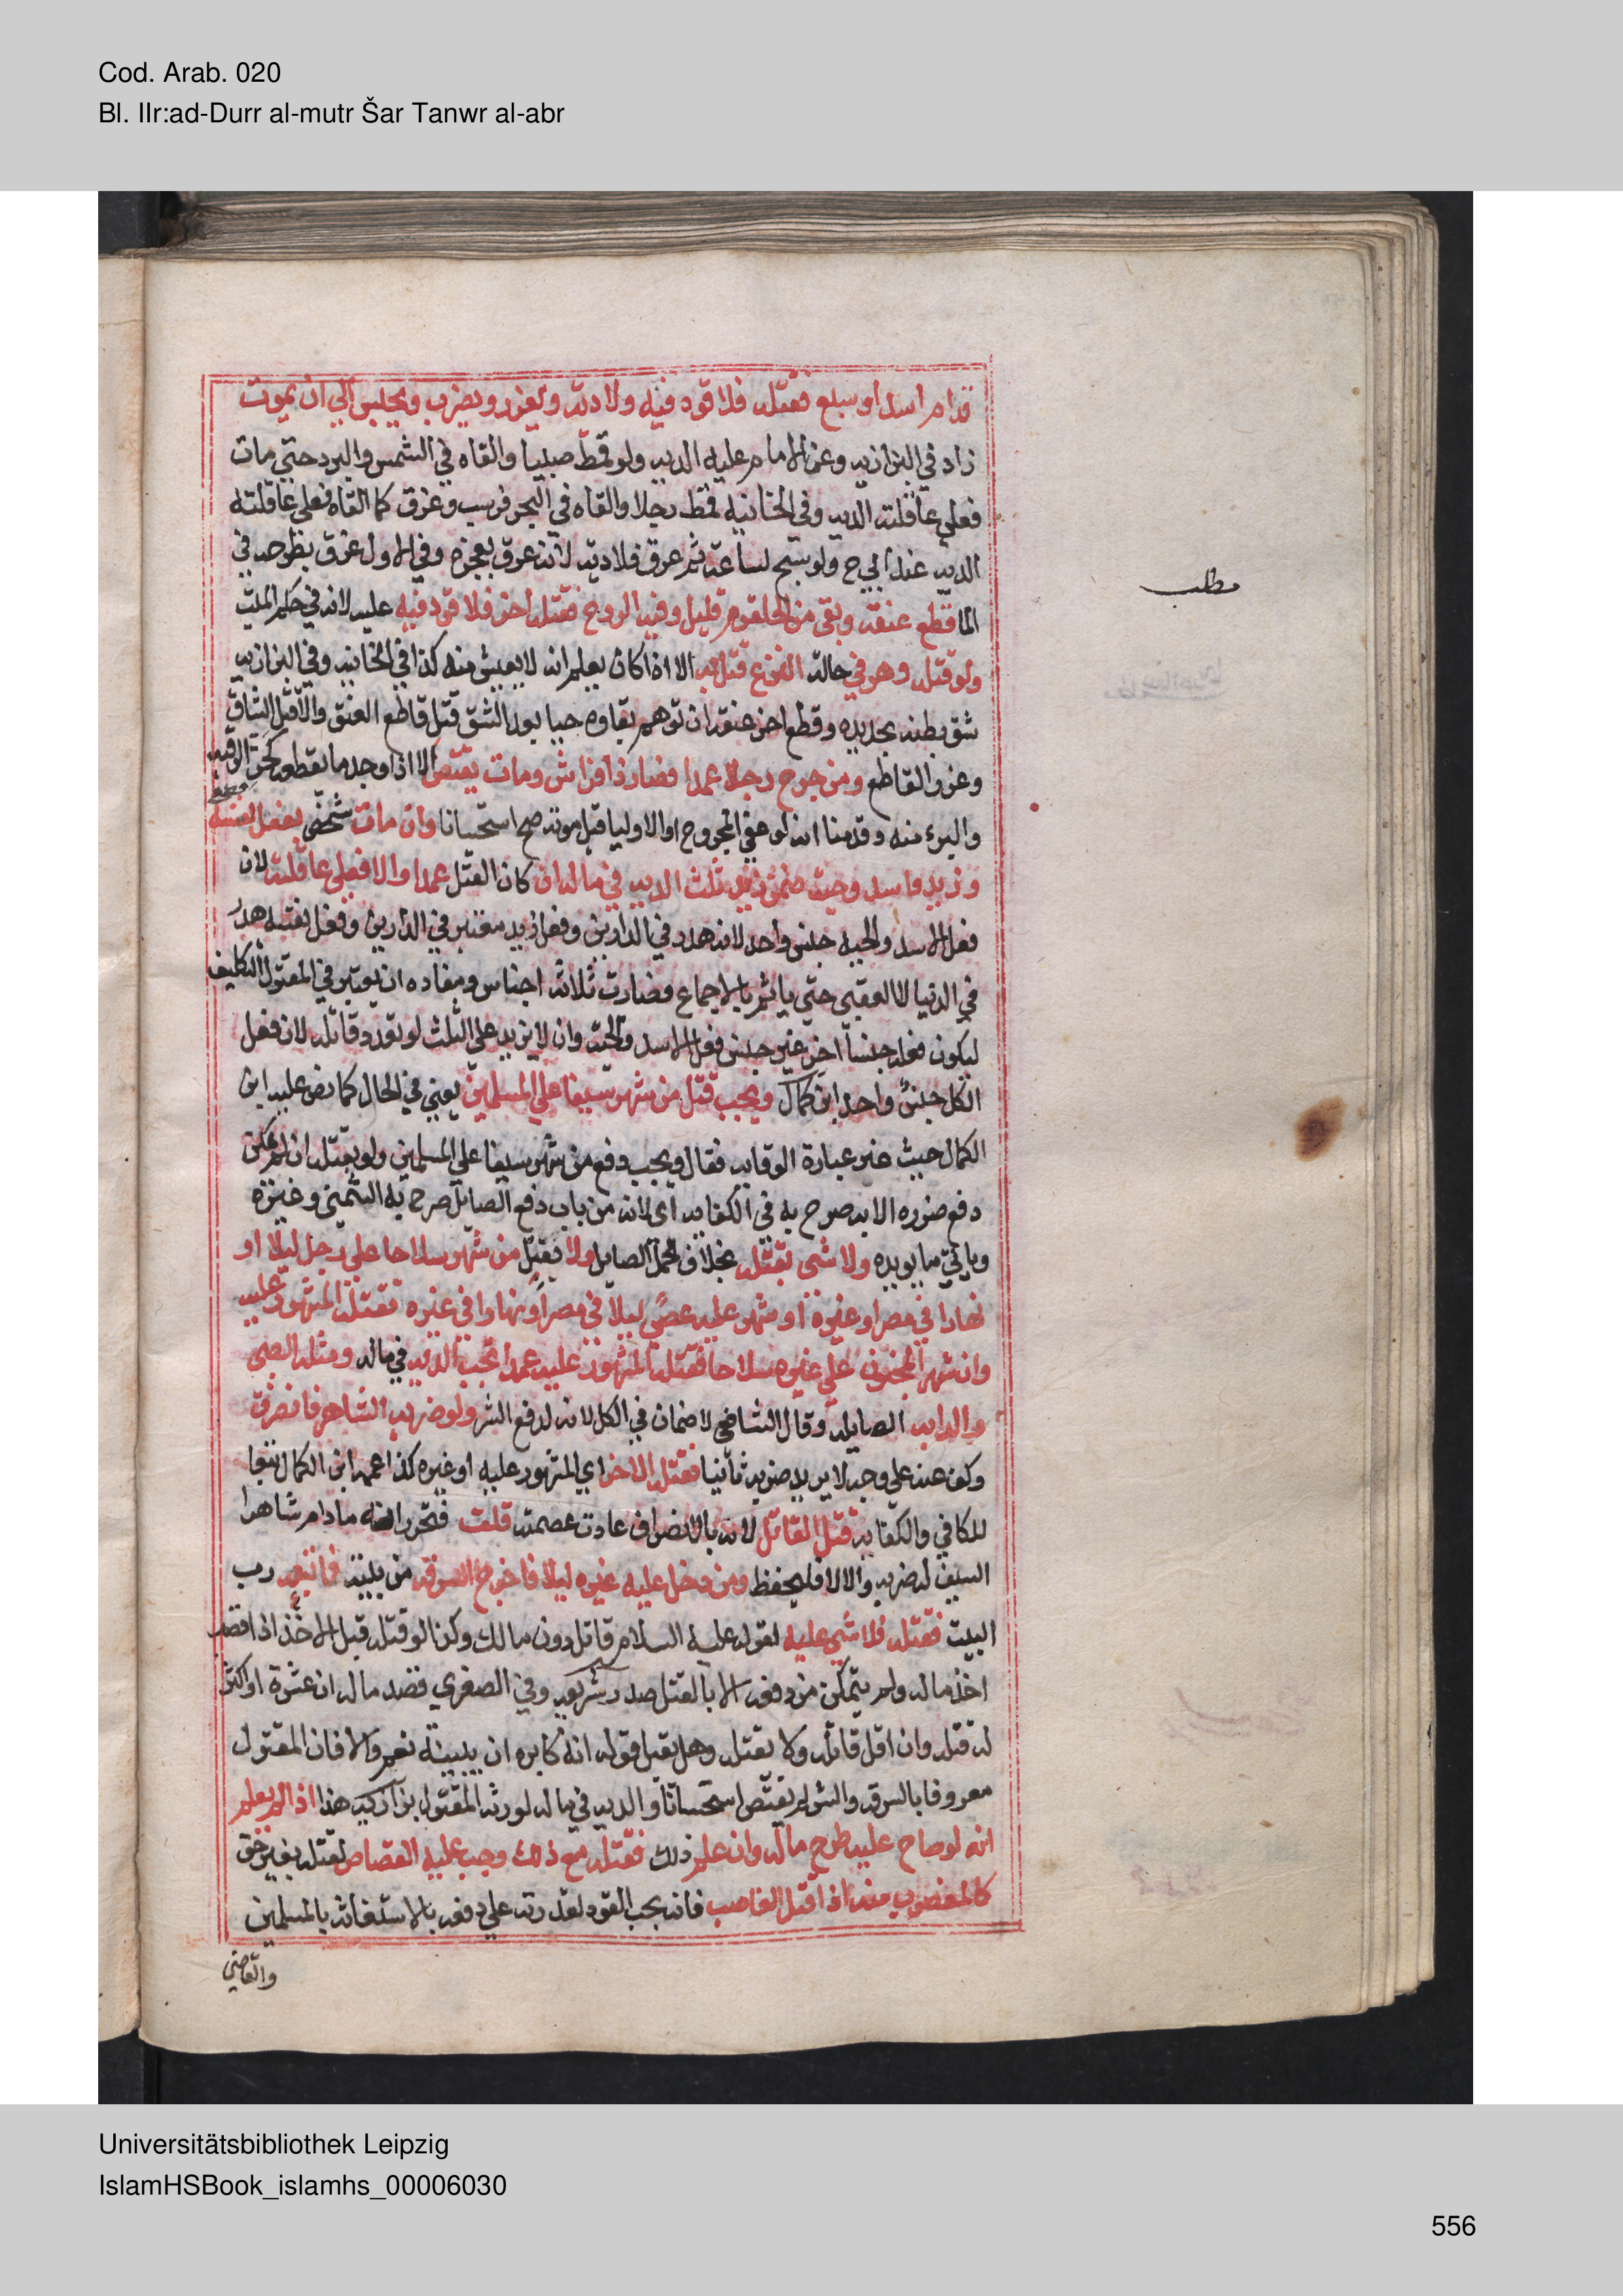 Cod. Arab. 020
Bl. IIr:ad-Durr al-mutr Šar Tanwr al-abr
قدام اسد او سبع فقتله فلا قود فيه ولا دية ويعزر ويضرب ويحبس الي ان يموت
زاد في البزازيه وعن الامام عليه الديه ولو قمط صبيا والقاه في الشمس والبرد حتي مات
فعلي عاقلته الديه وفي الخانيه قمط رجلا والقاه في البحر فرسب وغرق كما القاه فعلي عاقلته
الديه عند ابي ح ولو سبح ساعة ثم غرق فلا دية لانه غرق بعجزه وفي الاول غرق بطرحه في
الما قطع عنقه وبقي من الحلقوم قليل وفيه الروح فقتله اخر فلا قود فيه عليه لانه في حكم الميت
ولو قتله وهو في حالة النزع قتل به الا اذا كان يعلم انه لا يعيش منه كذا في الخانيه وفي البزازيه
شق بطنه بحديده وقطع اخر عنقه ان توهم بقاوه حيا بعد الشق قتل قاطع العنق والا قتل الشاق
وعزر القاطع ومن جرح رجلا عمدا فصار ذا فراش ومات يقتص الا اذا وجد ما يقطعه كحز الرقبه
والبرء منه وقدمنا انه لو عفي المجروح او الاوليا قبل موته صح استحسانا وان مات شخص بفعل نفسه
وزيد واسد وحية ضمن زيد ثلث الديه في ماله ان كان القتل عمدا والا فعلي عاقلته لان
فعل الاسد والحيه جنس واحد لانه هدر في الدارين وفعل زيد معتبر في الدارين وفعل نفسه هدر
في الدنيا لا العقبي حتي ياثم بالاجماع فصارت ثلاثة اجناس ومفاده ان يعتبر في المقتول التكليف
ليكون فعله جنسا اخر غير جنس فعل الاسد والحية وان لا يزيد علي الثلث لو تعدد قاتله لان فعل
الكل جنس واحد ابن كمال ويجب قتل من شهر سيفا علي المسلمين يعني في الحال كما نص عليه ابن
الكمال حيث غير عبارة الوقايه فقال ويجب دفع من شهر سيفا علي المسلمين ولو بقتله ان لم يمكن
دفع ضرره الا به صرح به في الكفايه اي لانه من باب دفع الصايل صرح به الشمني وغيره
وياتي ما يويده ولا شي بقتله بخلاف الجمل الصايل ولا يقتل من شهر سلاحا علي رجل ليلا او
نهارا في مصر او غيره او شهر عليه عصي ليلا في مصر او نهارا في غيره فقتله المشهور عليه
وان شهر المجنون علي غيره سلاحا فقتله المشهور عليه عمدا تجب الديه في ماله ومثله الصبي
والدابه الصايله وقال الشافعي لا ضمان في الكل لانه لدفع الشر ولو ضربه الشاهر فانصرف
وكف عنه علي وجه لا يريد ضربه ثانيا فقتله الاخر اي المشهور عليه او غيره كذا عممه ابن الكمال تبعا
للكافي والكفايه قتل القاتل لانه بالانصراف عادت عصمته قلت فتحرر انه مادام شاهرا
السيف له ضربه والا لا فليحفظ ومن دخل عليه غيره ليلا فاخرج السرقه من بيته فاتبعه رب
البيت فقتله فلا شي عليه لقوله عليه السلام قاتل دون مالك وكذا لو قتله قبل الاخذ اذا قصد
اخذ ماله ولم يتمكن من دفعه الا بالقتل صدر شريعه وفي الصغري قصد ماله ان عشرة او اكثر
له قتله وان اقل قاتله ولا يقتله وهل يقبل قوله انه كابره ان ببينة نعم والا فان المقتول
معروفا بالسرقه والشر لم يقتص استحسانا والديه في ماله لورثة المقتول بزازيه هذا اذا لم يعلم
انه لو صاح عليه طرح ماله وان علم ذلك فقتله مع ذلك وجب عليه القصاص لقتله بغير حق
كالمغصوب منه اذا قتل الغاصب فانه يجب القود لقدرته علي دفعه بالاستغاثة بالمسلمين
والقاضي
مطلب
Universitätsbibliothek Leipzig
IslamHSBook_islamhs_00006030
556